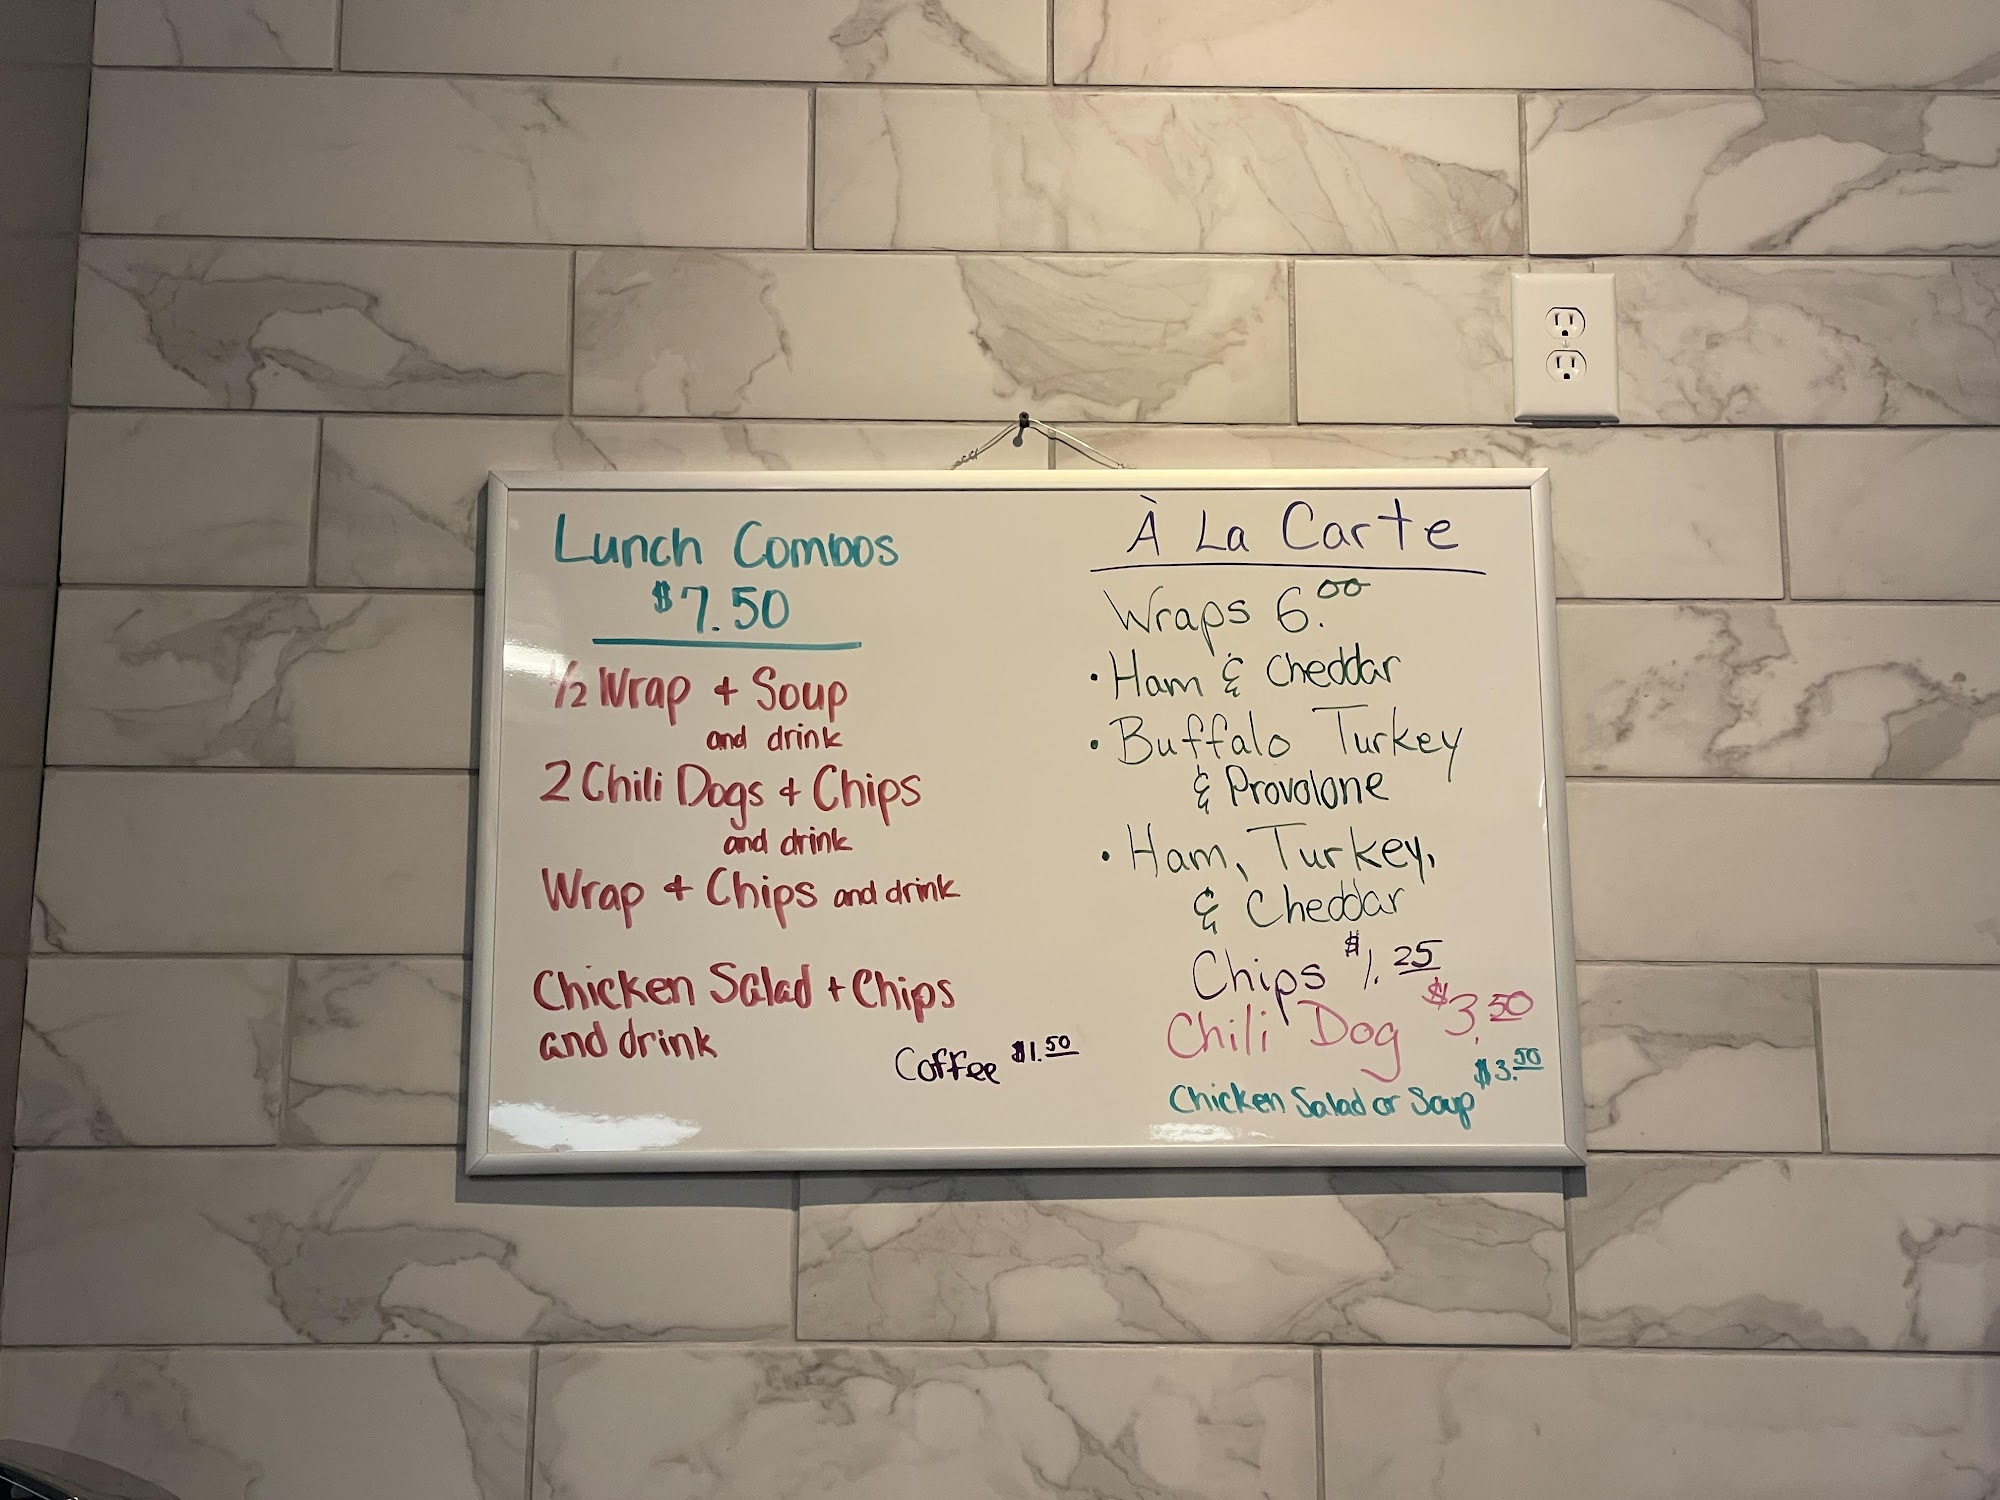 Lunch Combos
$7.50
1/2 Wrap + Soup
and drink
2 Chili Dogs + Chips
and drink
Wrap + Chips and drink
Chicken Salad + Chips
and drink
Coffee $1.50
À La Carte
Wraps 6.00
• Ham & Cheddar
• Buffalo Turkey
& Provolone
• Ham, Turkey,
& Cheddar
Chips $1.25
Chili Dog $3.50
Chicken Salad or Soup $3.50